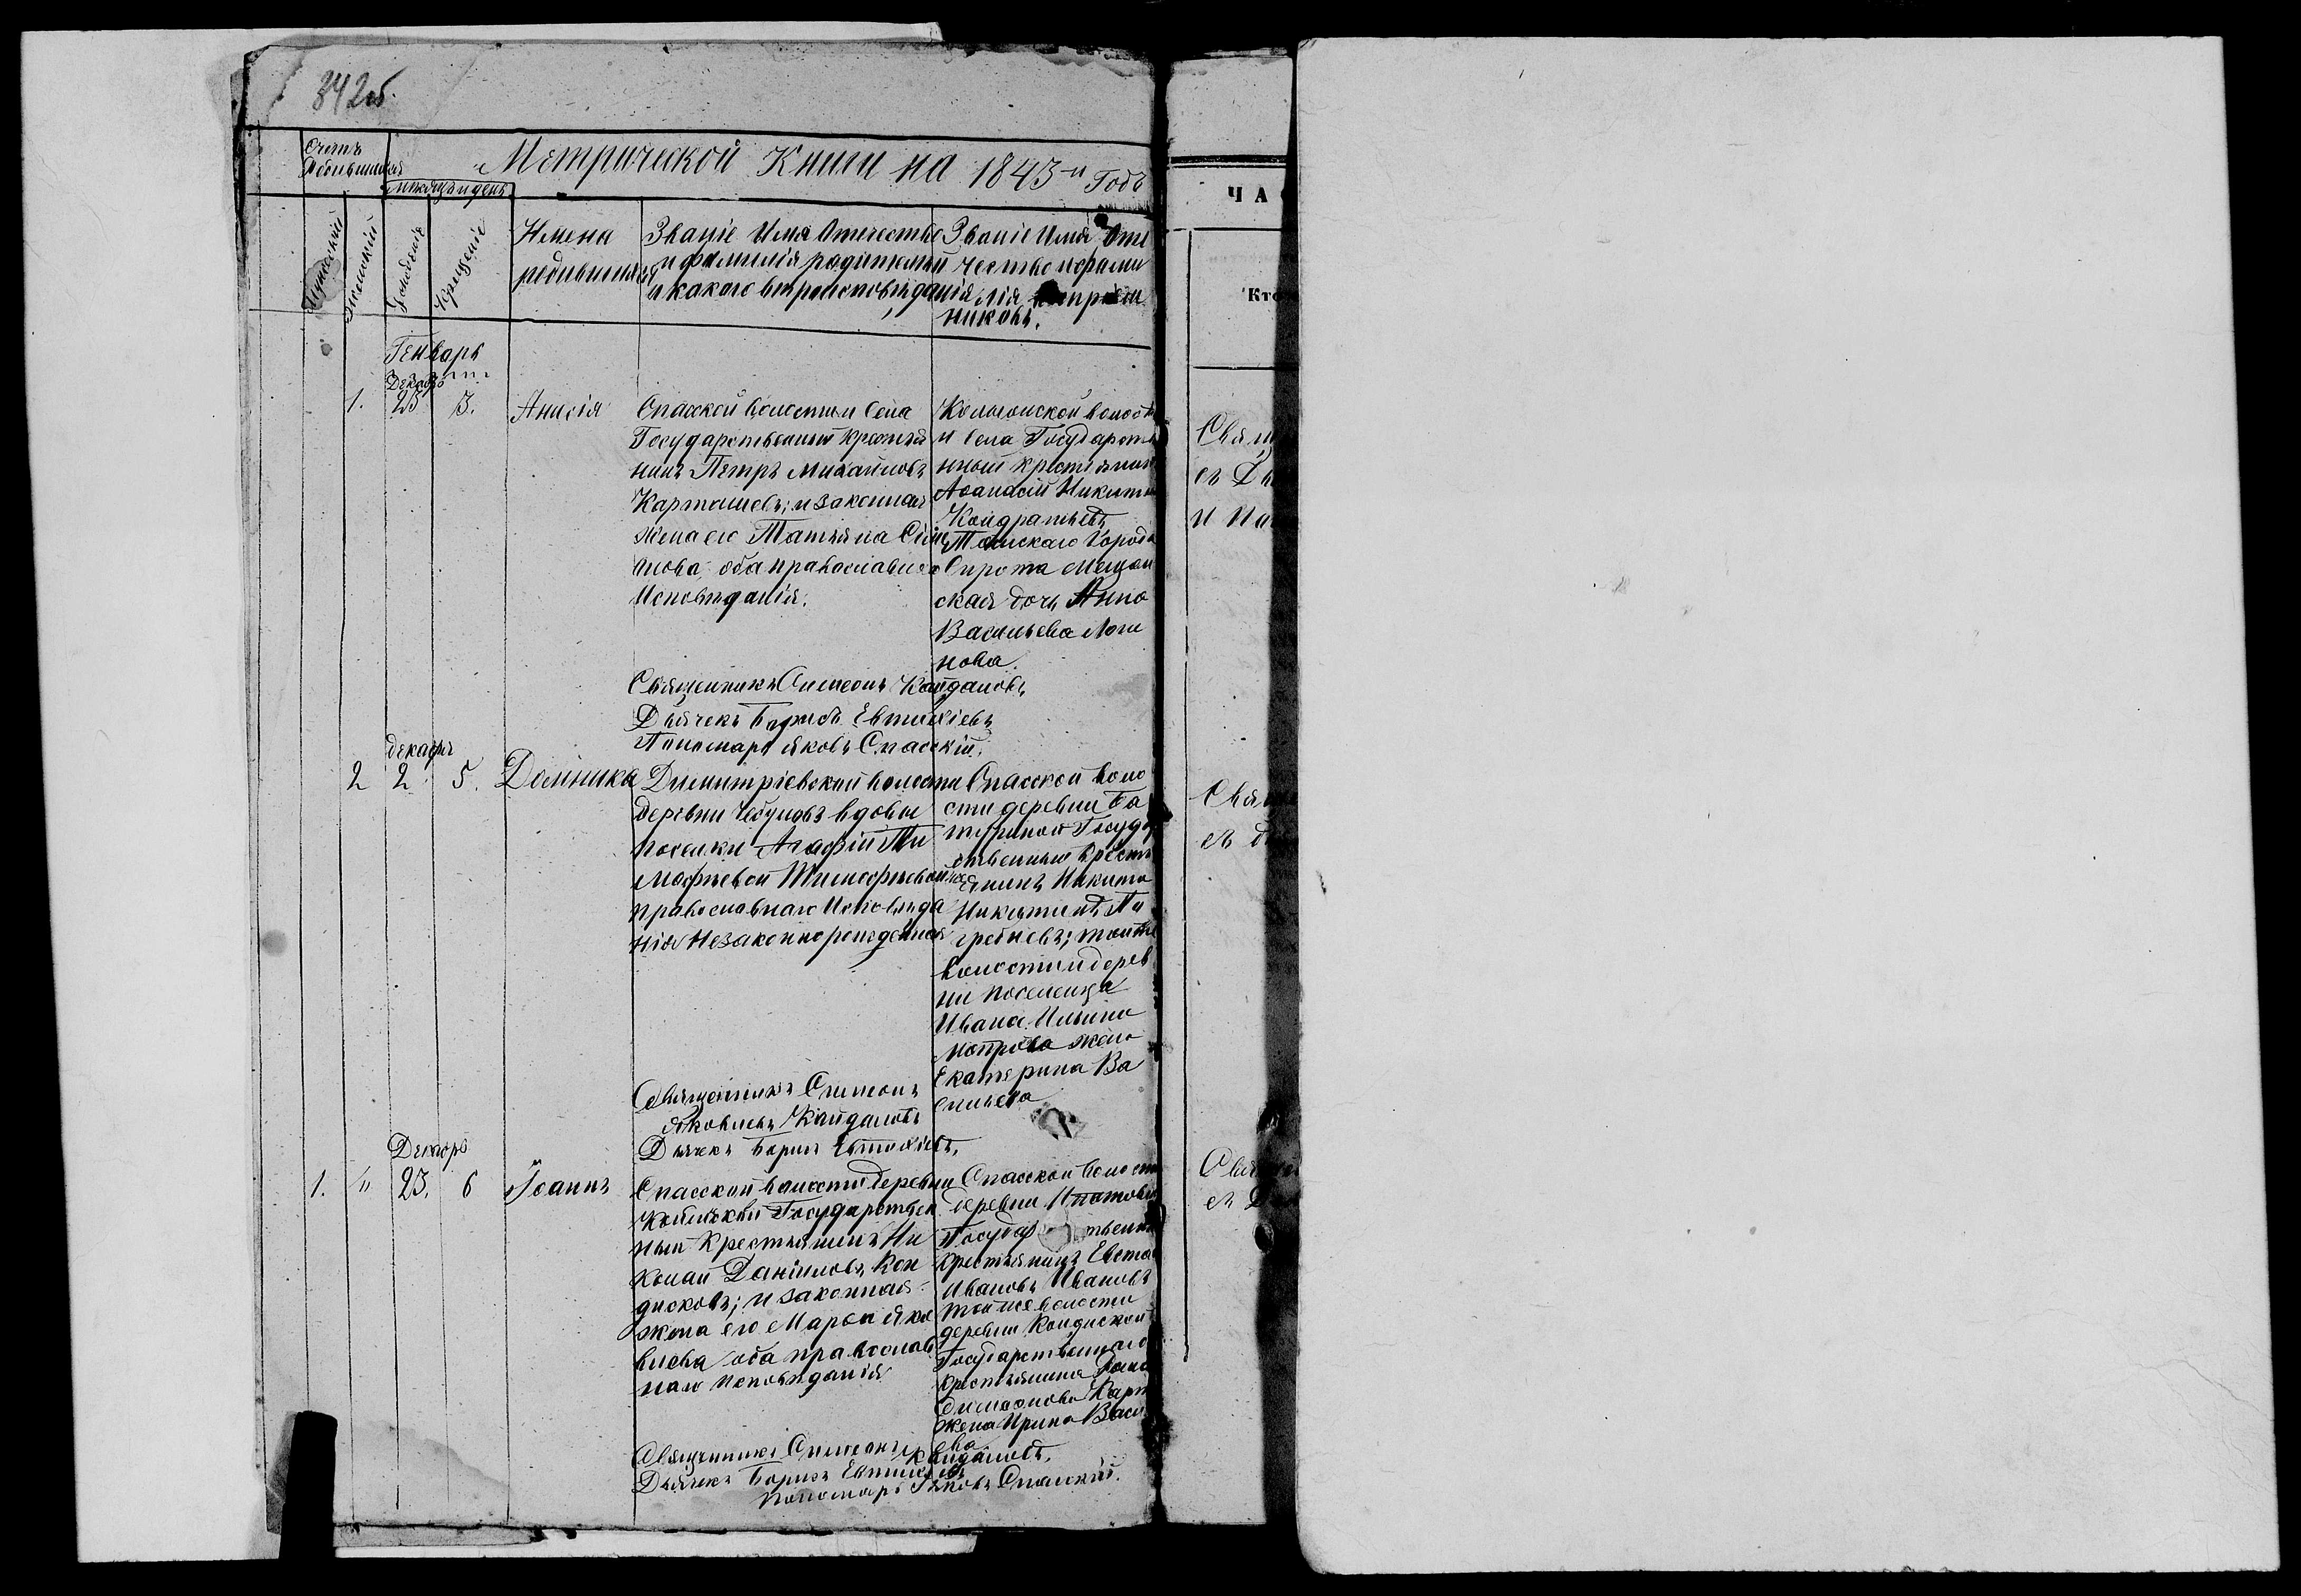 342об.
Счетъ
Родившихся
Метрической Книги на 1843-й Годъ
мѣсяцъ и день
Мужескій
Женскій
Рожденіе
Крещеніе
Имена
родившихся
Званіе Имя Отечество
и фамилія родителей
и какого вѣроисповѣданія
Званіе Имя Оте
чество и фами
лія воспріем
никовъ.
Генварь
Декабрь
1. 23 3. Анисія
Спасской волости и Села
Государственный крестья
нинъ Петръ Михайловъ
Карташевъ; и законная
жена его Татьяна
оба православнаго
Исповѣданія.
волости
и Села Государств
нный крестьянинъ
Афанасій Никитинъ
Кондратьевъ
Томскаго Города
Сирота Мещан
ская дочь Анна
Васильева Логи
нова.
Священникъ Симеонъ Кайдаловъ
Дьячекъ Борисъ Евтихіевъ
Пономарь Яковъ Спасскій.
декабрь
2 2 5. Домника
Димитріевской волости
деревни вдовы
поселки Агафіи Ти
мофѣевой Тимофѣевой
православнаго Исповѣда
нія Незаконнорожденная
Спасской воло
сти деревни Ба
туриной Государ
ственный крест
янинъ Никита
Никитинъ По
гребневъ; той же
волости и дерев
ни поселенца
Ивана Ильина
жена
Екатерина Ва
сильева
Священникъ Симеонъ
Яковлевъ Кайдаловъ
Дьячекъ Борисъ Евтихіевъ.
Декабрь
1. " 23. 6 Іоаннъ
Спасской волости деревни
Государствен
ный Крестьянинъ Ни
колай Даниловъ Кон
дуковъ; и законная
жена его Марѳа Яко
влева оба православ
наго исповѣданія
Спасской волости
деревни Ипатовой
Государственный
крестьянинъ Евста
Ивановъ Ивановъ
той же волости
деревни
Государственнаго
крестьянина
жена Ирина Васи
ева
Священникъ Симеонъ Кайдаловъ.
Дьячекъ Борисъ Евтихіевъ
Пономарь Яковъ Спасскій.
ЧА
Кто
Свящ
съ Дь
и По
Свя
съ
Свящ
съ Д